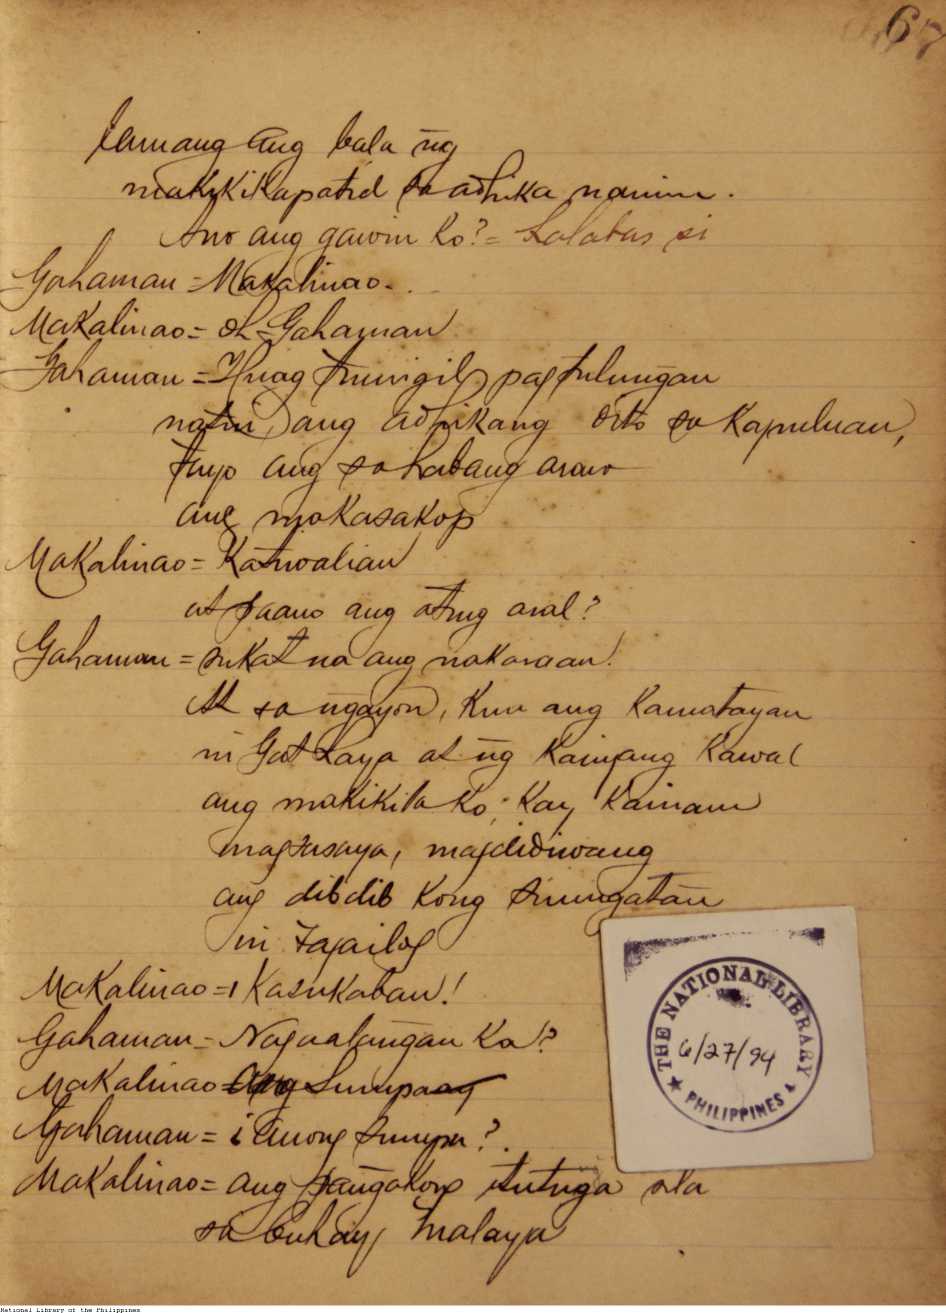 67
lamang ang bala ng̃
makikikapatid sa adhika namin.
Ano ang gawin ko? = Lalabas si
Gahaman = Makalinao.
Makalinao = oh = Gahaman
Gahaman = Huag tumigil pagtulungan
natin ang adhikang dito sa Kapuluan,
tayo ang sa habang arao
ang makasakop
Makalinao = Katiwalian
at paano ang ating aral?
Gahaman = sukat na ang nakaraan!
At sa ng̃ayon, kun ang kamatayan
ni Gat Laya at ng̃ kaniyang kawal
ang makikita ko; kay kainam
magsasaya, magdidiwang
ang dibdib kong
ni Tagailog
Makalinao = ¡Kasukaban!
Gahaman = Nagaalang̃an ka?
Makalinao = Ang Sumpaay
Gahaman = ¿Anong sumpa?
Makalinao = ang pang̃akong itutuga sila
sa buhay malaya
THE NATIONAL LIBRARY
6/27/94
PHILIPPINES
National Library of the Philippines